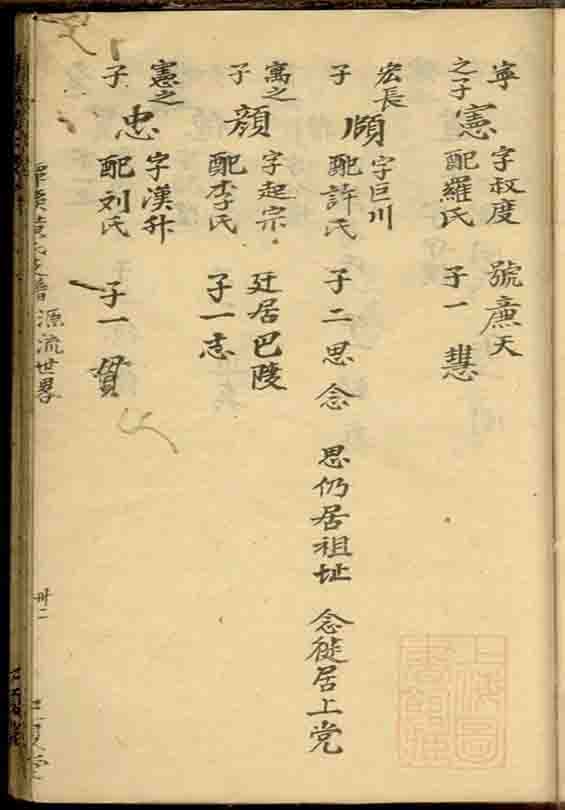 寧之子 憲 字叔度 號廉天
配羅氏 子一 慧
宏長子 頎 字巨川
配許氏 子二 思 念 思仍居祖址 念徙居上党
寓之子 顔 字起宗 廷居巴陵
配李氏 子一 志
憲之子 忠 字漢升
配刘氏 子一 貫
源流世畧
卅二
上海圖書館藏